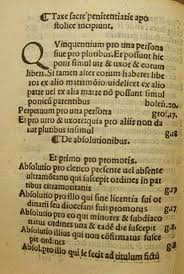 ¶ Taxe sacre penitentiarie apo
stolice incipiunt.
Quinquennium pro una persona
siue pro pluribus. Et possunt hic
poni simul uir & uxor & eorum
liberi. Si tamen uterque eorum haberet libe
ros ex alio matrimonio uidelicet ex alio
patre uel ex alia matre nõ possunt simul
poni capiunt paruentes bolen. 20.
Perpetuum pro una persona g. 17.
Et pro uiro & uxore quia pro aliis non da
tur pluribus insimul g. 18
¶ De absolutionibus.
Et primo pro promotis.
Absolutio pro clerico presente uel absente
ultramontano qui suscepit ordines in pati
bus ultramontanis g. 17
Absolutio pro illo qui sine licentia sui or
dinarii seu diocesani fuit promotus g. 16
Absolutio pro eo qui minores & subdiaco
natus suscepit ordines g.
Absolutio illius qui non confirmatus susce
pit ordines
Absol. pro illo qui se fecit ad titulum fictũ